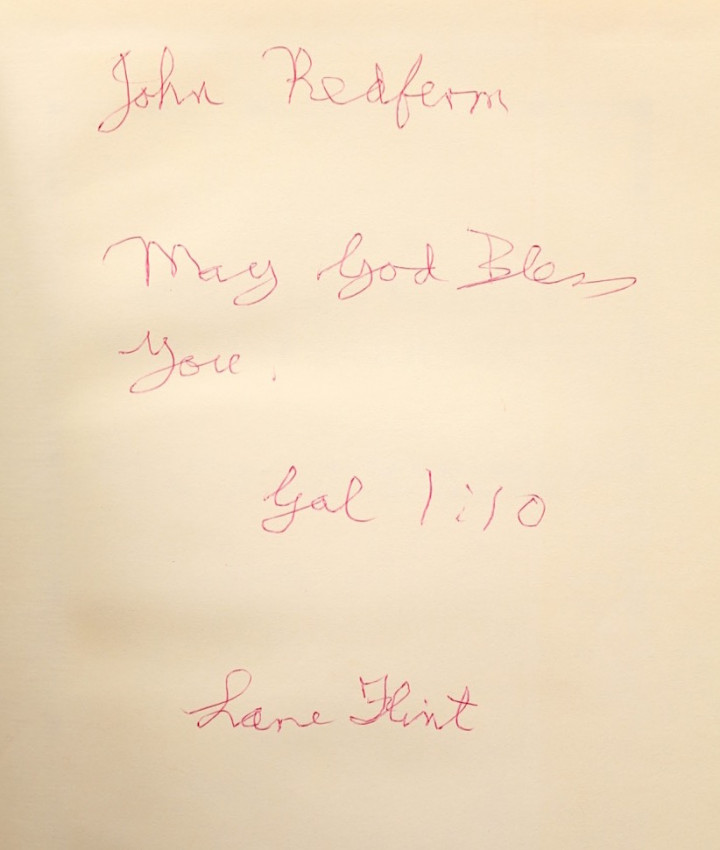 John Redfern
May God Bless
You.
Gal 1:10
Lane Flint